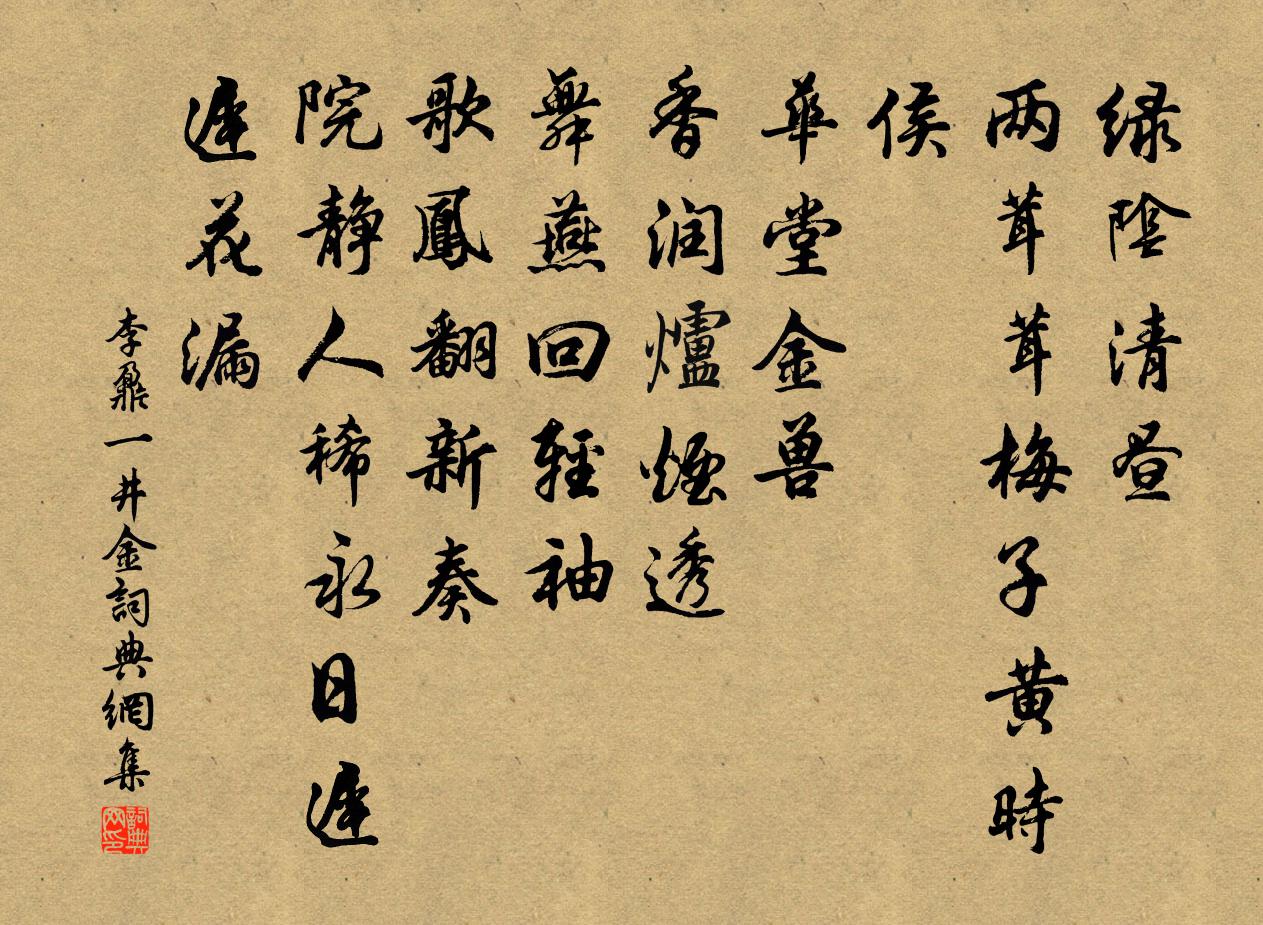 绿陰清昼
两茸茸梅子黄時
侯
華堂金兽
香润爐煙透
舞燕回輕袖
歌鳳翻新奏
院静人稀永日遲
遲花漏
李鼐一井金詞典網集
詞典網印